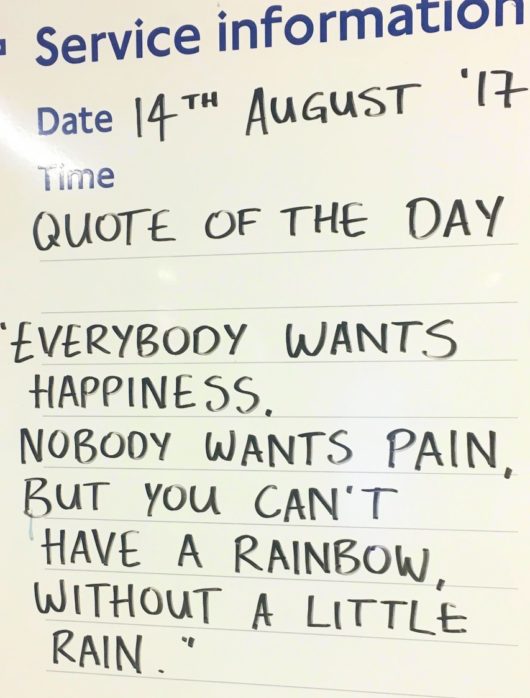 Service information
Date 14TH AUGUST '17
Time
QUOTE OF THE DAY
"EVERYBODY WANTS
HAPPINESS.
NOBODY WANTS PAIN,
BUT YOU CAN'T
HAVE A RAINBOW,
WITHOUT A LITTLE
RAIN."